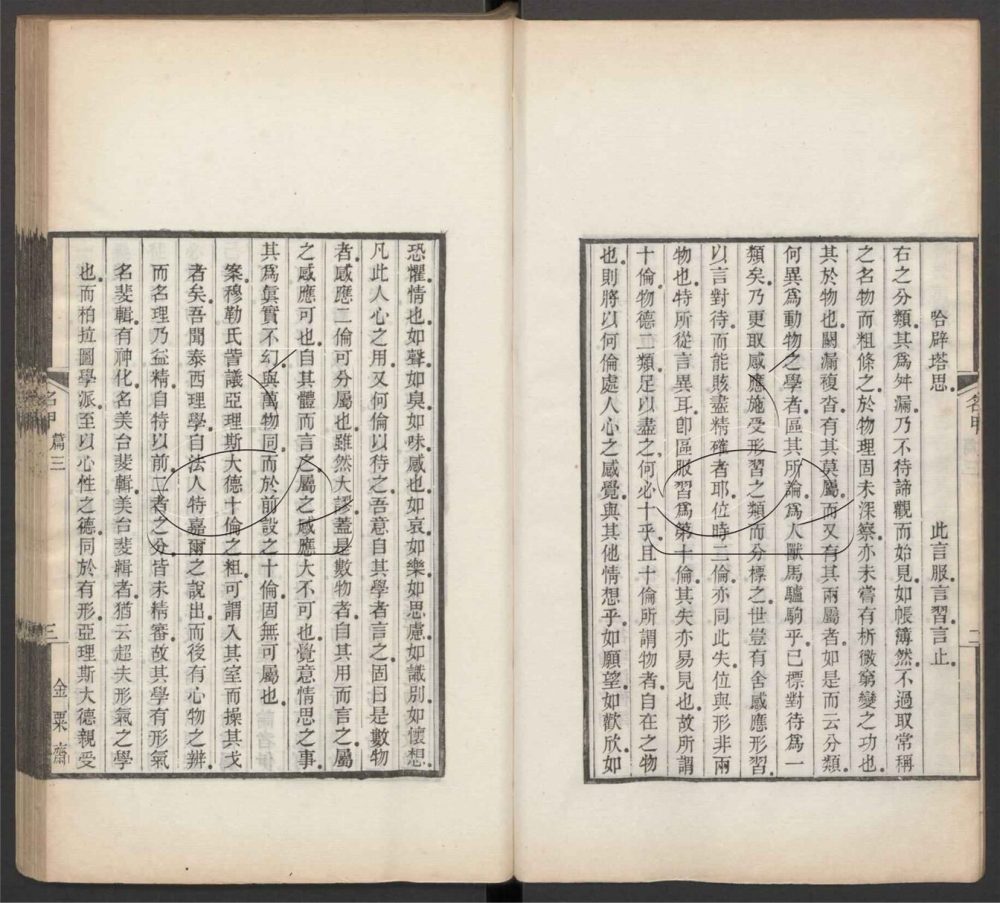 哈辟塔思。　此言服。言習。言止。
右之分類。其爲舛漏。乃不待諦觀而始見。如帳簿然。不過取常稱
之名物而粗條之。於物理固未深察。亦未嘗有析微窮變之功也。
其於物也。闕漏複沓。有其莫屬。而又有其兩屬者。如是而云分類。
何異爲動物之學者。區其所論。爲人獸馬驢駒乎。已標對待爲一
類矣。乃更取感應施受形習之類而分標之。世豈有舍感應形習。
以言對待而能賅盡精確者耶。位時二倫。亦同此失。位與形非兩
物也。特所從言異耳。卽區服習爲第十倫。其失亦易見也。故所謂
十倫。物德二類。足以盡之。何必十乎。且十倫所謂物者。自在之物
也。則將以何倫處人心之感覺。與其他情想乎。如願望。如歡欣。如
名甲
二
恐懼。情也。如聲。如臭。如味。感也。如哀。如樂。如思慮。如識別。如懷想。
凡此人心之用。又何倫以待之。吾意自其學者言之。固曰是數物
者。感應二倫可分屬也。雖然大謬。蓋是數物者。自其用而言之。屬
之感應可也。自其體而言之。屬之感應大不可也。覺意情思之事。
其爲眞實不幻。與萬物同。而於前設之十倫。固無可屬也。
案。穆勒氏訾議亞理斯大德十倫之粗。可謂入其室而操其戈
者矣。吾聞泰西理學。自法人特嘉爾之說出。而後有心物之辨。
而名理乃益精。自特以前。二者之分。皆未精審。故其學有形氣
名斐輯。有神化。名美台斐輯。美台斐輯者。猶云超夫形氣之學
也。而柏拉圖學派。至以心性之德。同於有形。亞理斯大德親受
名甲
篇三
三
金粟齋